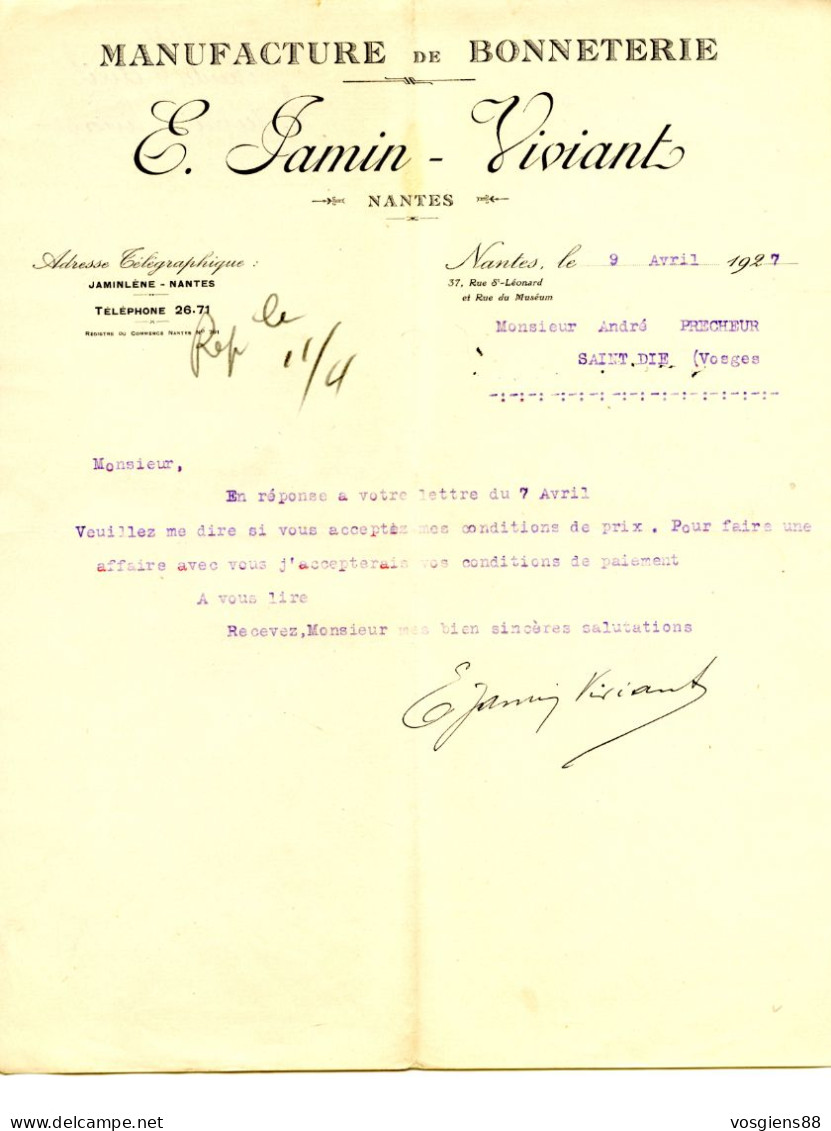 MANUFACTURE DE BONNETERIE
E. Jamin - Viviant
NANTES
Adresse Télégraphique :
JAMINLÈNE - NANTES
TÉLÉPHONE 26.71
REGISTRE DU COMMERCE NANTES
Rep le
11/4
Nantes, le 9 Avril 1927
37, Rue St-Léonard
et Rue du Muséum
Monsieur André PRECHEUR
SAINT DIE (Vosges
-:-:-: -:-:-: -:-:-:-:-:-:-:-
Monsieur,
En réponse a votre lettre du 7 Avril
Veuillez me dire si vous acceptez mes conditions de prix . Pour faire une
affaire avec vous j'accepterais vos conditions de paiement
A vous lire
Recevez,Monsieur mes bien sincères salutations
E Jamin Viviant
vosgiens88